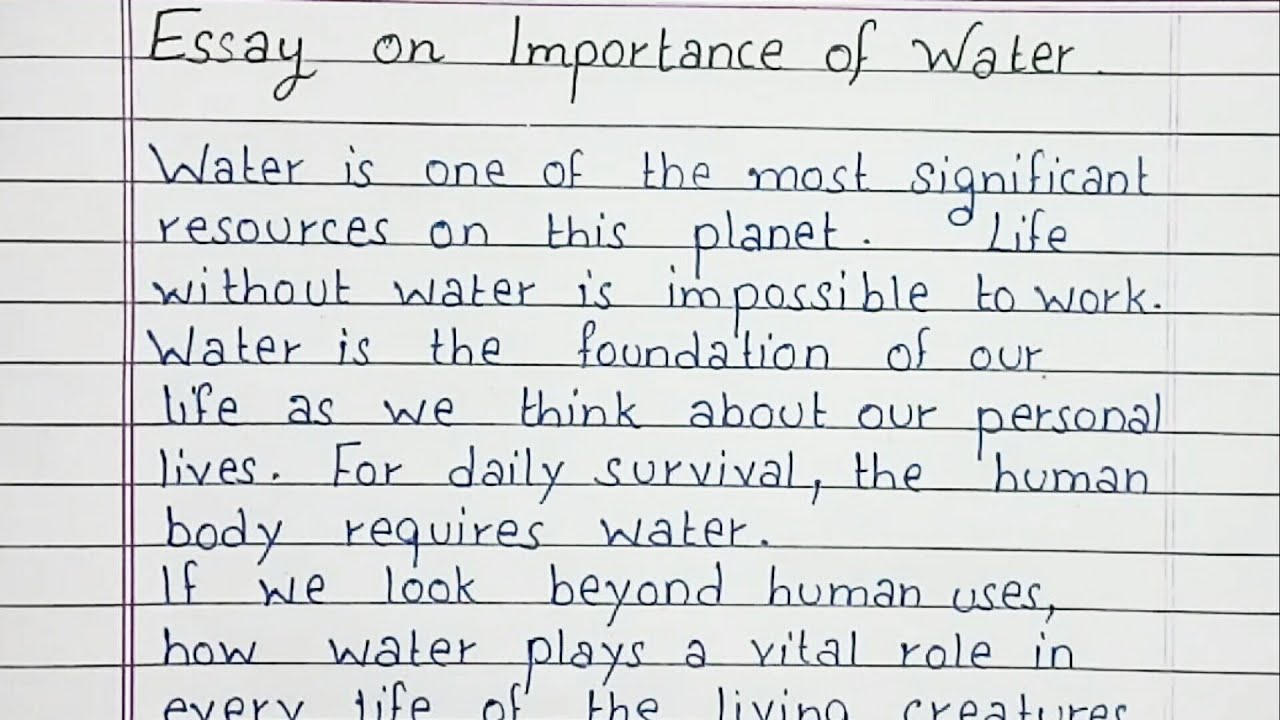 Essay on Importance of Water.
Water is one of the most significant
resources on this planet. Life
without water is impossible to work.
Water is the foundation of our
life as we think about our personal
lives. For daily survival, the human
body requires water.
If we look beyond human uses,
how water plays a vital role in
every life of the living creatures